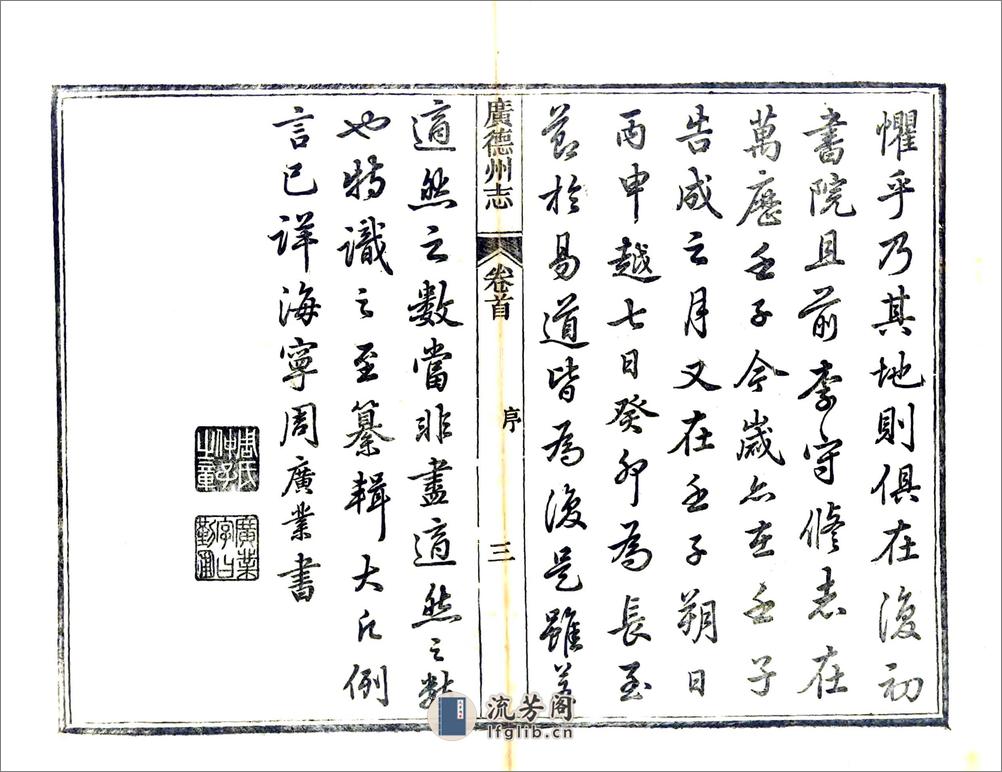 懼乎乃其地則俱在復初
書院且前李守修志在
萬歷壬子今歲亦在壬子
告成之月又在壬子朔日
丙申越七日癸卯為長至
節於易道皆為復是雖若
廣德州志
卷首
序
三
適然之數當非盡適然之數
也特識之至纂輯大凡例
言已詳海寧周廣業書
周氏
仲子
之章
廣業
字曰
勤圃
流芳阁
lfglib.cn